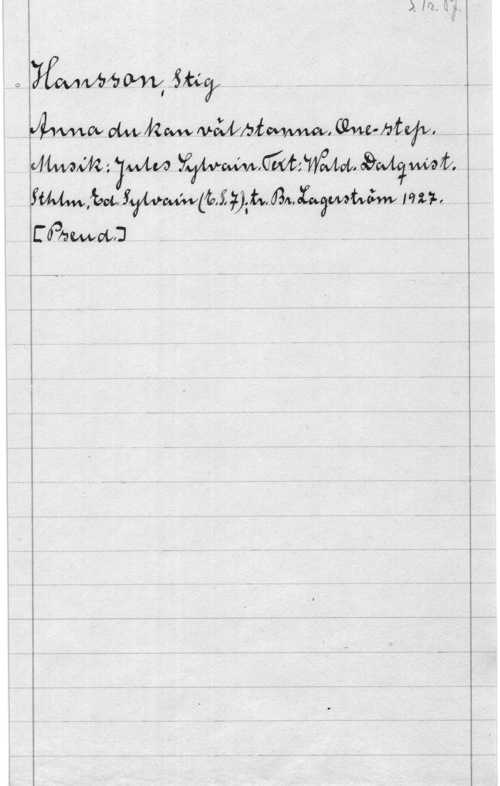 Hansson, Stig
Anna du kan väl stanna. One-step.
Musik: Jules Sylvain. Text: Wald. Dalquist.
Sthlm, Ed. Sylvain (E.S.7); tr. Br. Lagerström 1927.
[Pseud.]